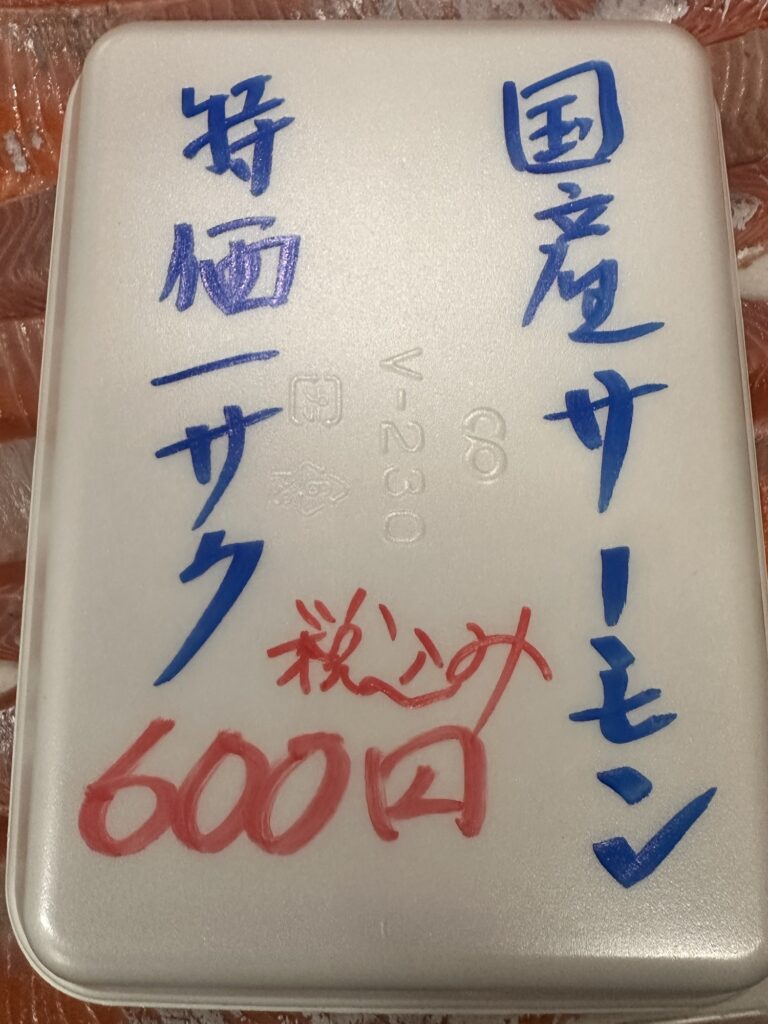 国産サーモン
特価一サク
税込み
600円
V-230